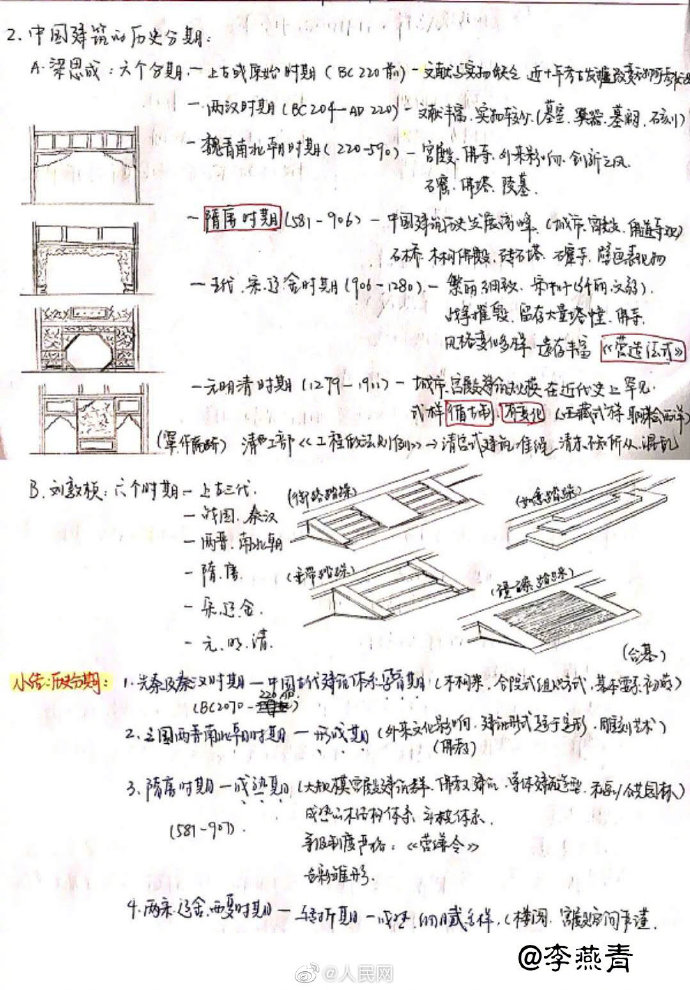 2. 中国建筑的历史分期:
A. 梁思成: 六个分期 — 上古或原始时期 (BC 220前) — 文献与实物缺乏 近十年考古发掘
— 两汉时期 (BC204—AD 220) — 文献丰富. 实物较少. (墓室. 冥器. 墓祠. 石刻)
— 魏晋南北朝时期 (220—590) — 宫殿. 佛寺. 外来影响. 创新之风
石窟. 佛塔. 陵墓.
— 隋唐时期 (581-906) — 中国建筑历史发展高峰. (城市. 宫殿.
石桥. 木构佛殿. 砖石塔. 石窟寺. 壁画表现物
— 五代. 宋. 辽金时期 (906-1280). — 繁丽细致.
战争摧毁. 留存大量塔幢. 佛寺.
风格变化多样 遗存丰富 《营造法式》
— 元明清时期 (1279-1911) — 城市. 宫殿建筑规模在近代史上罕见.
式样 仿古制. 不变化
清 工部《工程做法则例》→ 清官式建筑准绳. 清末无所从. 混乱
B. 刘敦桢: 六个时期 — 上古三代.
(御路踏跺)
(如意踏跺)
— 战国. 秦汉
— 两晋. 南北朝
— 隋. 唐.
(垂带踏跺)
(礓磋踏跺)
— 宋. 辽. 金.
— 元. 明. 清.
(台基)
小结: 历史分期: 1. 先秦及秦汉时期 — 中国古代建筑体系 期 (木构架. 合院式组织方式. 基本要素初成)
(BC2070 — 220前)
2. 三国两晋南北朝时期 — 形成期 (外来文化影响. 建筑形式趋于定形. 雕刻艺术)
(佛教)
3. 隋唐时期 — 成熟期 (大规模宫殿建筑群. 佛教建筑. 单体建筑造型.
(581-907).
成熟的木结构体系. 斗栱体系.
等级制度严格: 《营缮令》
雏形.
4. 两宋. 辽金. 西夏时期 — 转折期 — 成熟. 细腻多样. (楼阁. 宫殿空间严谨.
@人民网
@李燕青